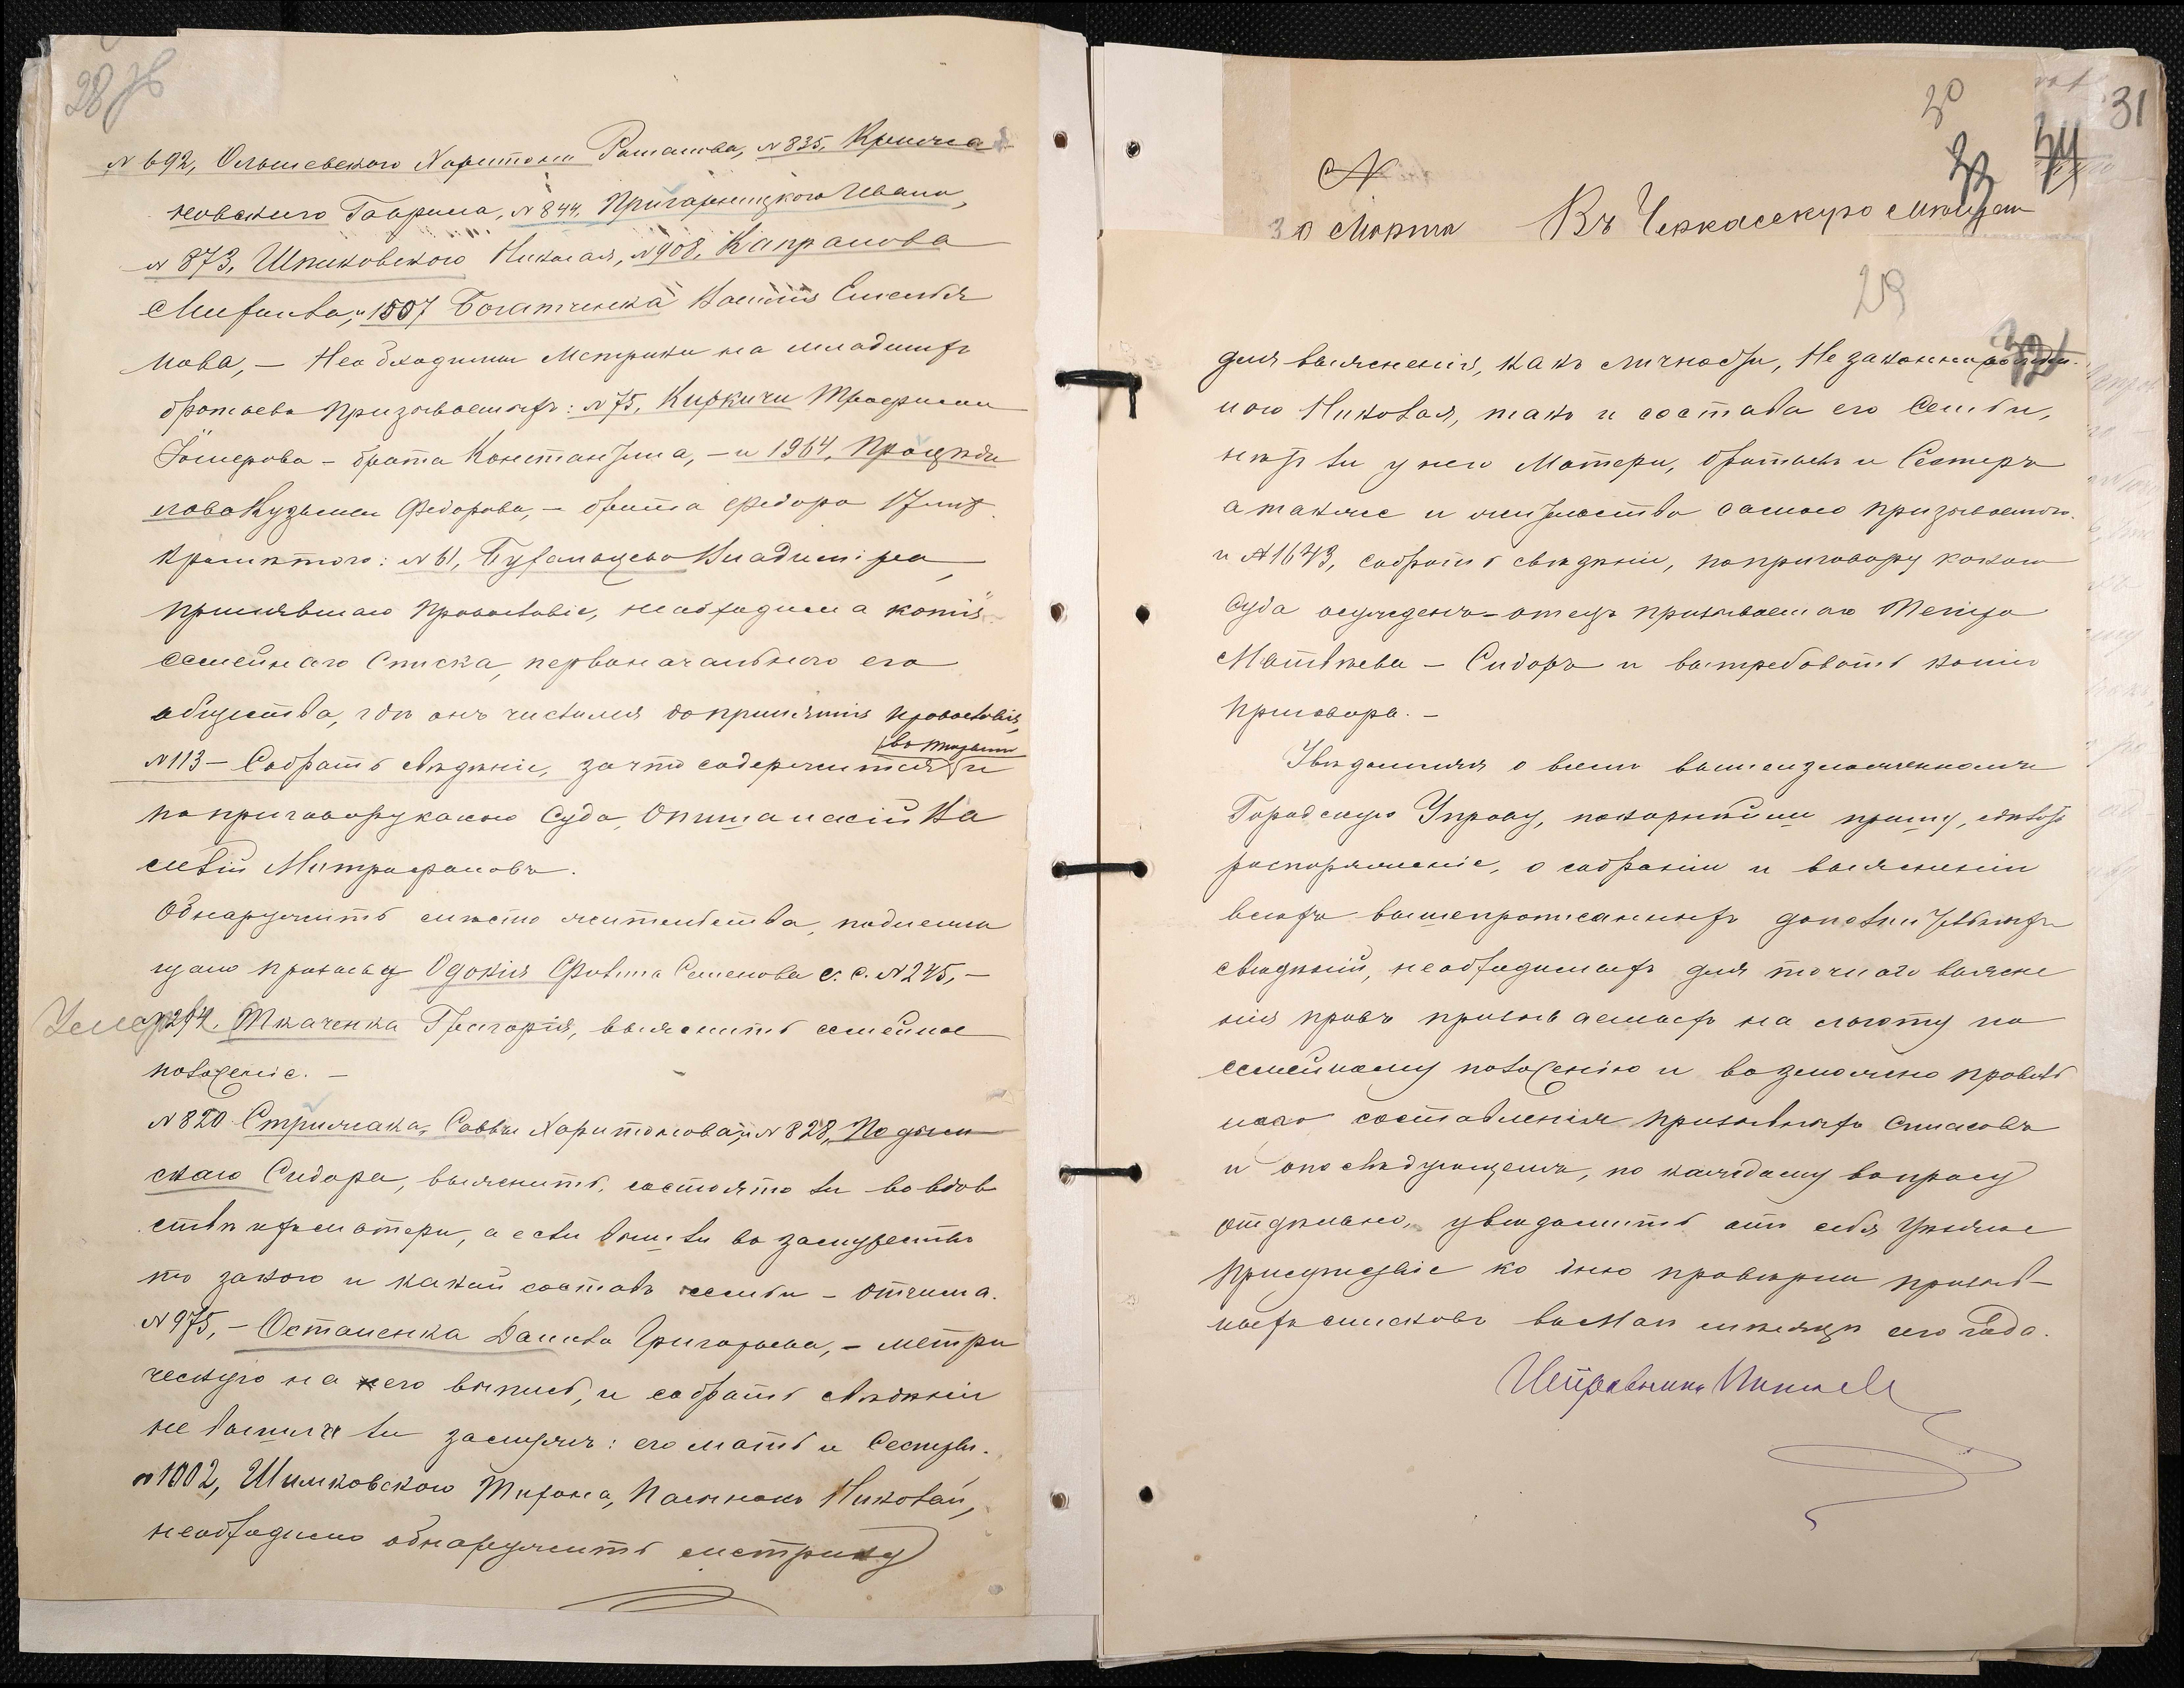 28 об
№ 692, Ольшевского Харитона Романова, № 835, Крыжа-
новского Гаврила, № 844, Пригарницкого Ивана,
№ 873, Шпиковского Николая, № 908, Капранова
и 1507 Богатченка Емелья
нова, — Необходимы Метрики на младшихъ
братьевъ призываемыхъ: № 75, Киркичи Трофима
— брата Константина, — и 1964, Процъ
Кузьмы Федорова, — брата Федора 17 лѣтъ.
Кромѣ того: № 61, Владиміра
принявшаго Православіе, необходима копія
семейнаго Списка, первоначального его
общества, гдѣ онъ числился до принятія православія,
въ тюрьмѣ
№ 113 — Собрать свѣдѣніе, за что содержится и
по приговору какого Суда, Ва
силій Митрофановъ.
Обнаружить мѣсто жительства, подлежа
щаго призыву Одокія Филипа Семенова с. с. № 245, —
Умер
№ 264. Ткаченка Григорія, выяснить семейное
положеніе. —
№ 820 Стрижака, Саввы Харитонова, и № 828, Подым
скаго Сидора, выяснить, состоятъ ли во вдов
ствѣ ихъ матери, а если вышли въ замужество
то за кого и какой составъ семьи — отчима.
№ 975, — Остапенка Данила Григорьева, — метри
ческую на него выпись, и собрать свѣдѣнія
не вышли ли замужъ: его мать и Сестры.
№ 1002, Шимковского Тихона, Пасынокъ Николай,
необходимо обнаружить метрику
31
30
33
34
№
30 Марта Въ Черкасскую мѣщан
29
32
для выясненія, какъ личности, Незаконнорожден-
ного Николая, такъ и состава его Семьи,
нѣтъ ли у него Матери, братьевъ и Сестеръ
а также и жительство самого призываемого.
и № 1643, собрать свѣдѣніе, по приговору какого
Суда осужденъ — отецъ призываемого Петра
Матвѣева — Сидоръ и вытребовать копію
приговора. —
Увѣдомляя о всемъ вышеизложенномъ
Городскую Управу, покорнѣйше прошу, сдѣлать
распоряженіе, о собраніи и выясненіи
всехъ вышепрописанныхъ дополнительныхъ
свѣдѣній, необходимыхъ для точнаго выясне
нія правъ призываемыхъ на льготу по
семейному положенію и возможно правиль
наго составленія призывныхъ списковъ
и о послѣдующемъ, по каждому вопросу
отдѣльно, увѣдомить отъ себя Уѣздное
Присутствіе ко дню провѣрки призыв-
ныхъ списковъ въ Маѣ мѣсяцѣ сего года.
Исправникъ